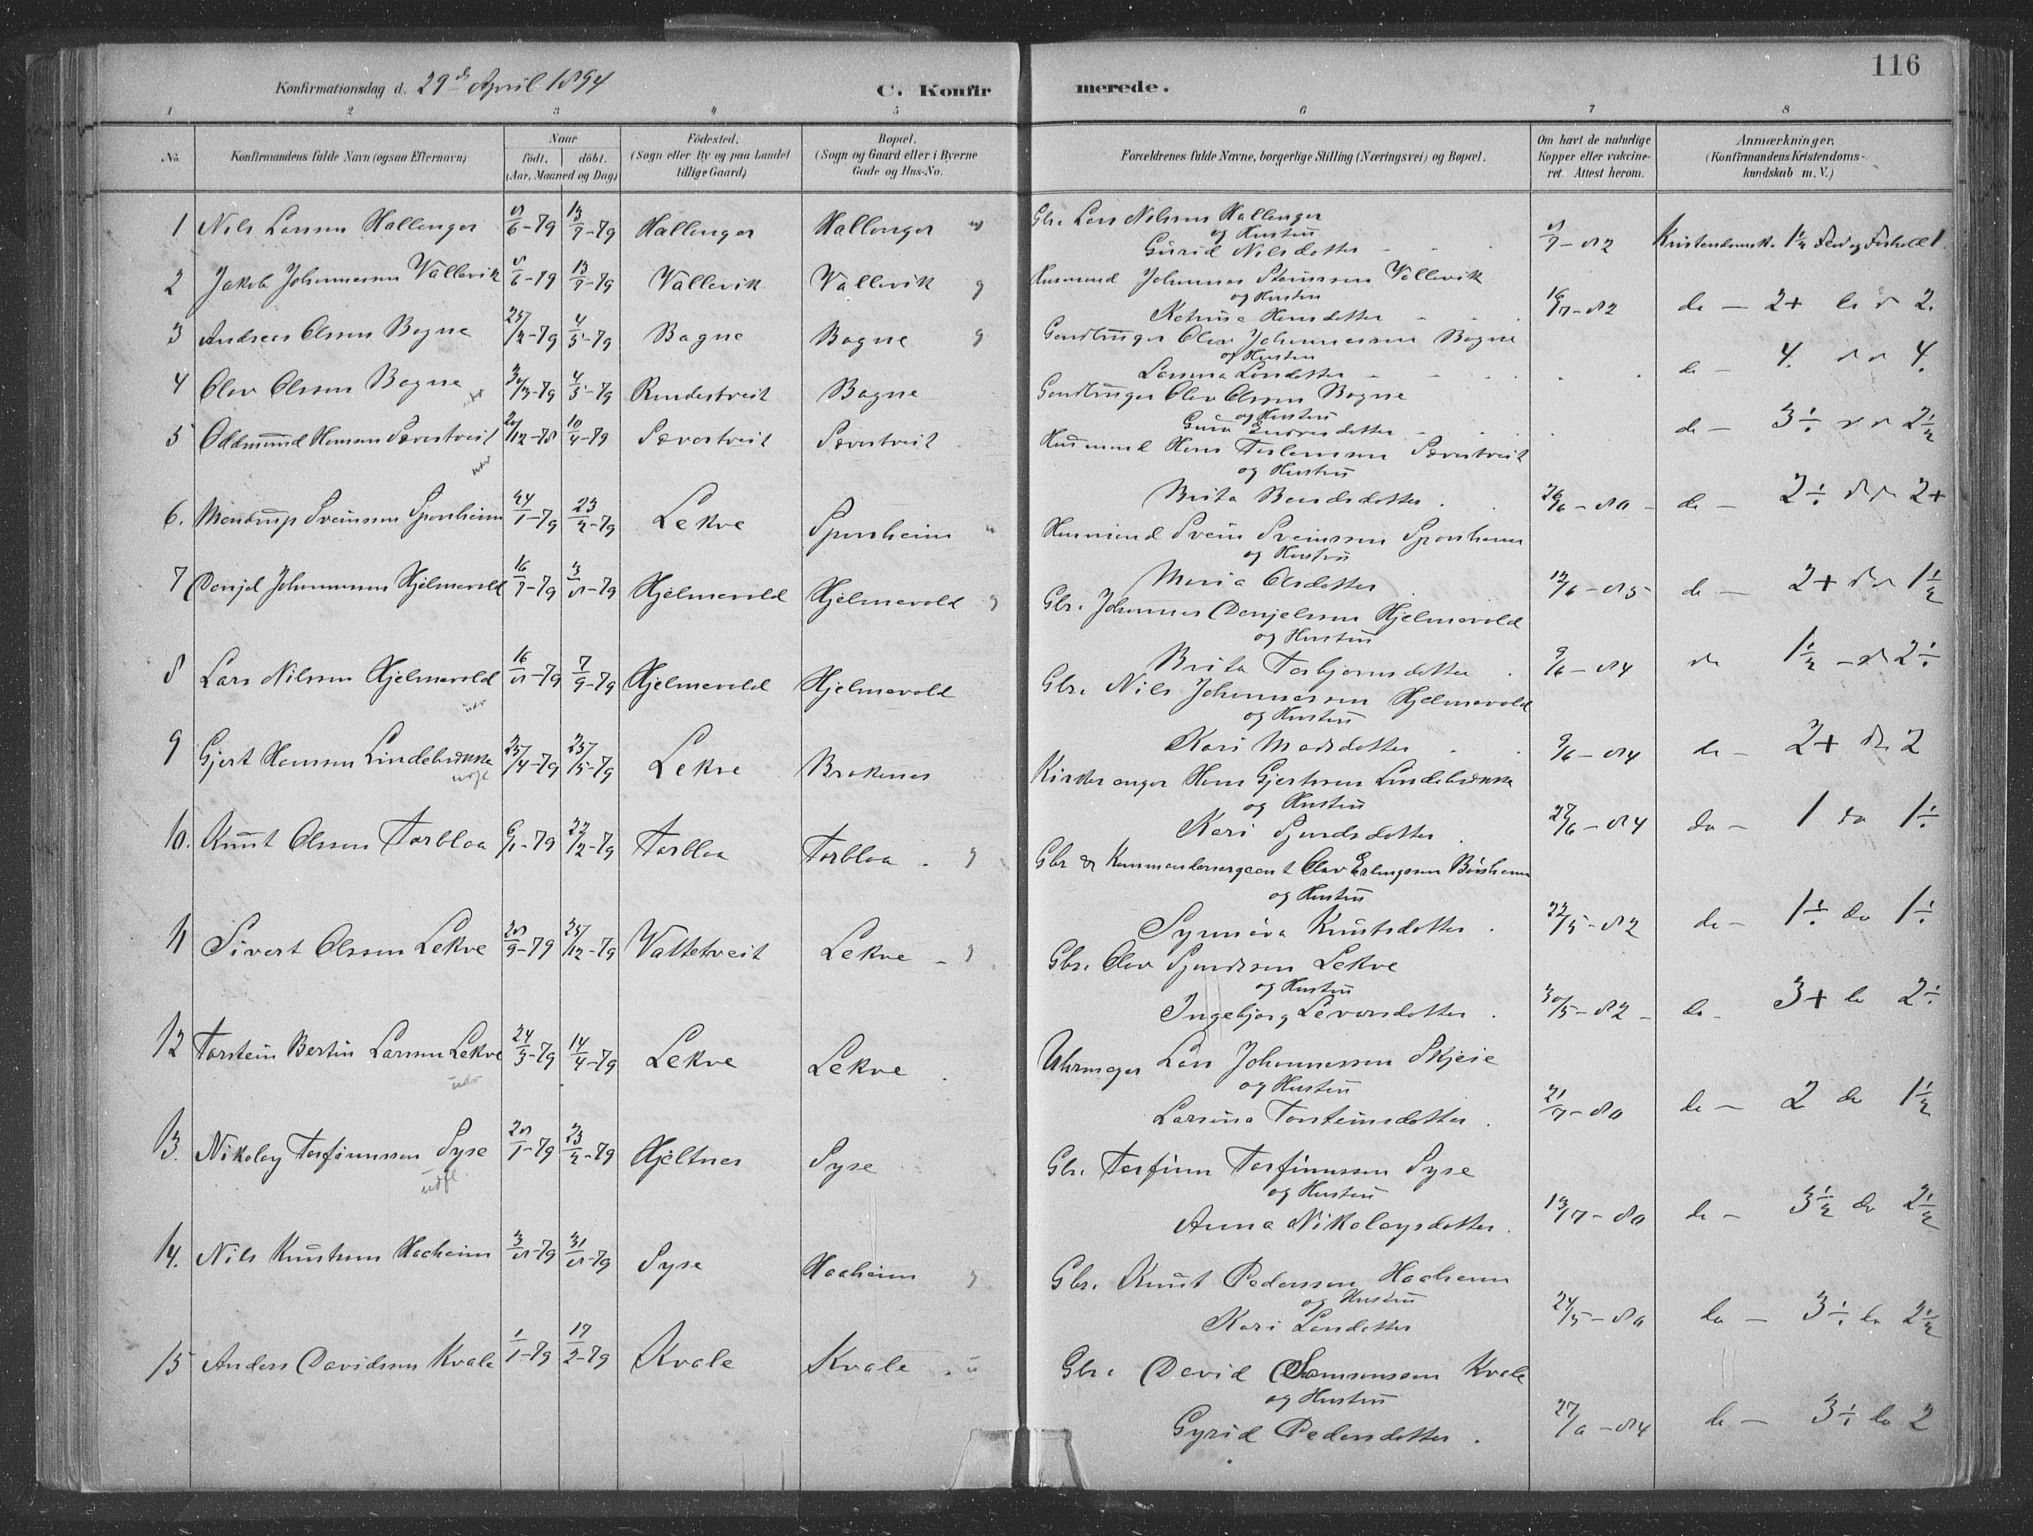 116
Konfirmationsdag d. 29de April 1894 C. Konfirmerede.
1 2 3 4 5 6 7 8
No. Konfirmandens fulde Navn (ogsaa Efternavn) Naar født, døbt. (Aar, Maaned og Dag) Födested. (Sogn eller By og paa Landet tillige Gaard) Bopæl. (Sogn og Gaard eller i Byerne Gade og Hus-No. Forældrenes fulde Navne, borgerlige Stilling (Næringsvei) og Bopæl. Om havt de naturlige Kopper eller vakcineret. Attest herom. Anmærkninger, (Konfirmandens Kristendomskundskab m. V.)
1 Nils Larsen Hallanger 8/6-79 13/7-79 Hallanger Hallanger Gbr. Lars Nilssen Hallanger
og Hustru
Gurid Nilsdotter 8/7-82 Kristendomsk. 1½ Flid og Forhold 1.
2 Jakob Johannessen Vallevik 8/6-79 13/7-79 Vallevik Vallevik g Husmand Johannes Steinssen Vallevik
og Hustru
Katrina Hansdotter 16/7-82 do — 2+ do 2.
3 Andreas Olssen Bagne 25/2-79 4/5-79 Bagne Bagne g Gaardbruger Olav Johannessen Bagne
og Hustru
Larsdotter do — 4. 4.
4 Olav Olssen Bagne 4/5-79 Bagne Gaardbruger Olav Olssen Bagne
og Hustru
do — 3÷ 2½
5 Oddmund Hansen Sævartveit 10/4-79 Sævartveit Sævartveit Husmand Hans Sævartveit
og Hustru
Brita 26/6-80 do — 2÷ 2+
6. Mandrup Sveinssen Sponheim 24/1-79 23/2-79 Lekve Sponheim Husmand Svein Sveinssen Sponheim
og Hustru
Maria Olsdotter 12/6-85 do — 2+ 1½
7 Danjel Johannessen Hjelmevold 16/7-79 3/8-79 Hjelmevold Hjelmevold g Gbr. Johannes Danjelssen Hjelmevold
og Hustru
Brita Torbjørnsdotter 9/6-84 do 1½ — 2÷
8 Lars Nilssen Hjelmevold 16/8-79 7/9-79 Hjelmevold Hjelmevold Gbr. Nils Johannessen Hjelmevold
udv og Hustru
Kari Madsdotter 9/6-84 do — 2+ do 2
9 Gjert Hansen Lindebrække 25/4-79 25/5-79 Lekve Brakenes Kirkesanger Hans Gjertsen Lindebrække
udfl og Hustru
Kari Sjurdsdotter 27/6-84 do — 1 do 1÷
10. Knut Olssen Torbloa 6/1-79 22/2-79 Torbloa Torbloa g Gbr & Kommandersergeant Olav Erlingssen
og Hustru
Synnøva Knutsdotter 22/5-82 do — 1÷ do 1÷
11 Sivert Olssen Lekve 28/9-79 25/12-79 Vattetveit Lekve — g Gbr. Olav Sjurdsen Lekve
og Hustru
Ingebjørg Levardsdotter 30/5-82 — do — 3+ do 2÷
12 Torstein Bertin Larsen Lekve 24/3-79 14/4-79 Lekve Lekve Uhrmager Lars Johannessen Skjeie
udv og Hustru
Larsina Torsteinsdotter 21/7-80 do — 2 do 1½
13. Nikolay Torfinnssen Syse 28/1-79 23/2-79 Hjeltnes Syse Gbr. Torfinn Torfinnssen Syse
udfl og Hustru
Anna Nikolaysdotter. 13/7-80 do — 3½ do 2½
14. Nils Knutsen Haaheim 3/8-79 31/8-79 Syse Haaheim g Gbr. Knut Pedersen Haaheim
og Hustru
Kari Larsdotter 24/5-80 do — 3÷ do 2½
15 Anders Davidsen Kvale 1/1-79 17/2-79 Kvale Kvale Gbr. David Samsonsen Kvale
og Hustru
Gyrid Pedersdotter. do — 3÷ do 2